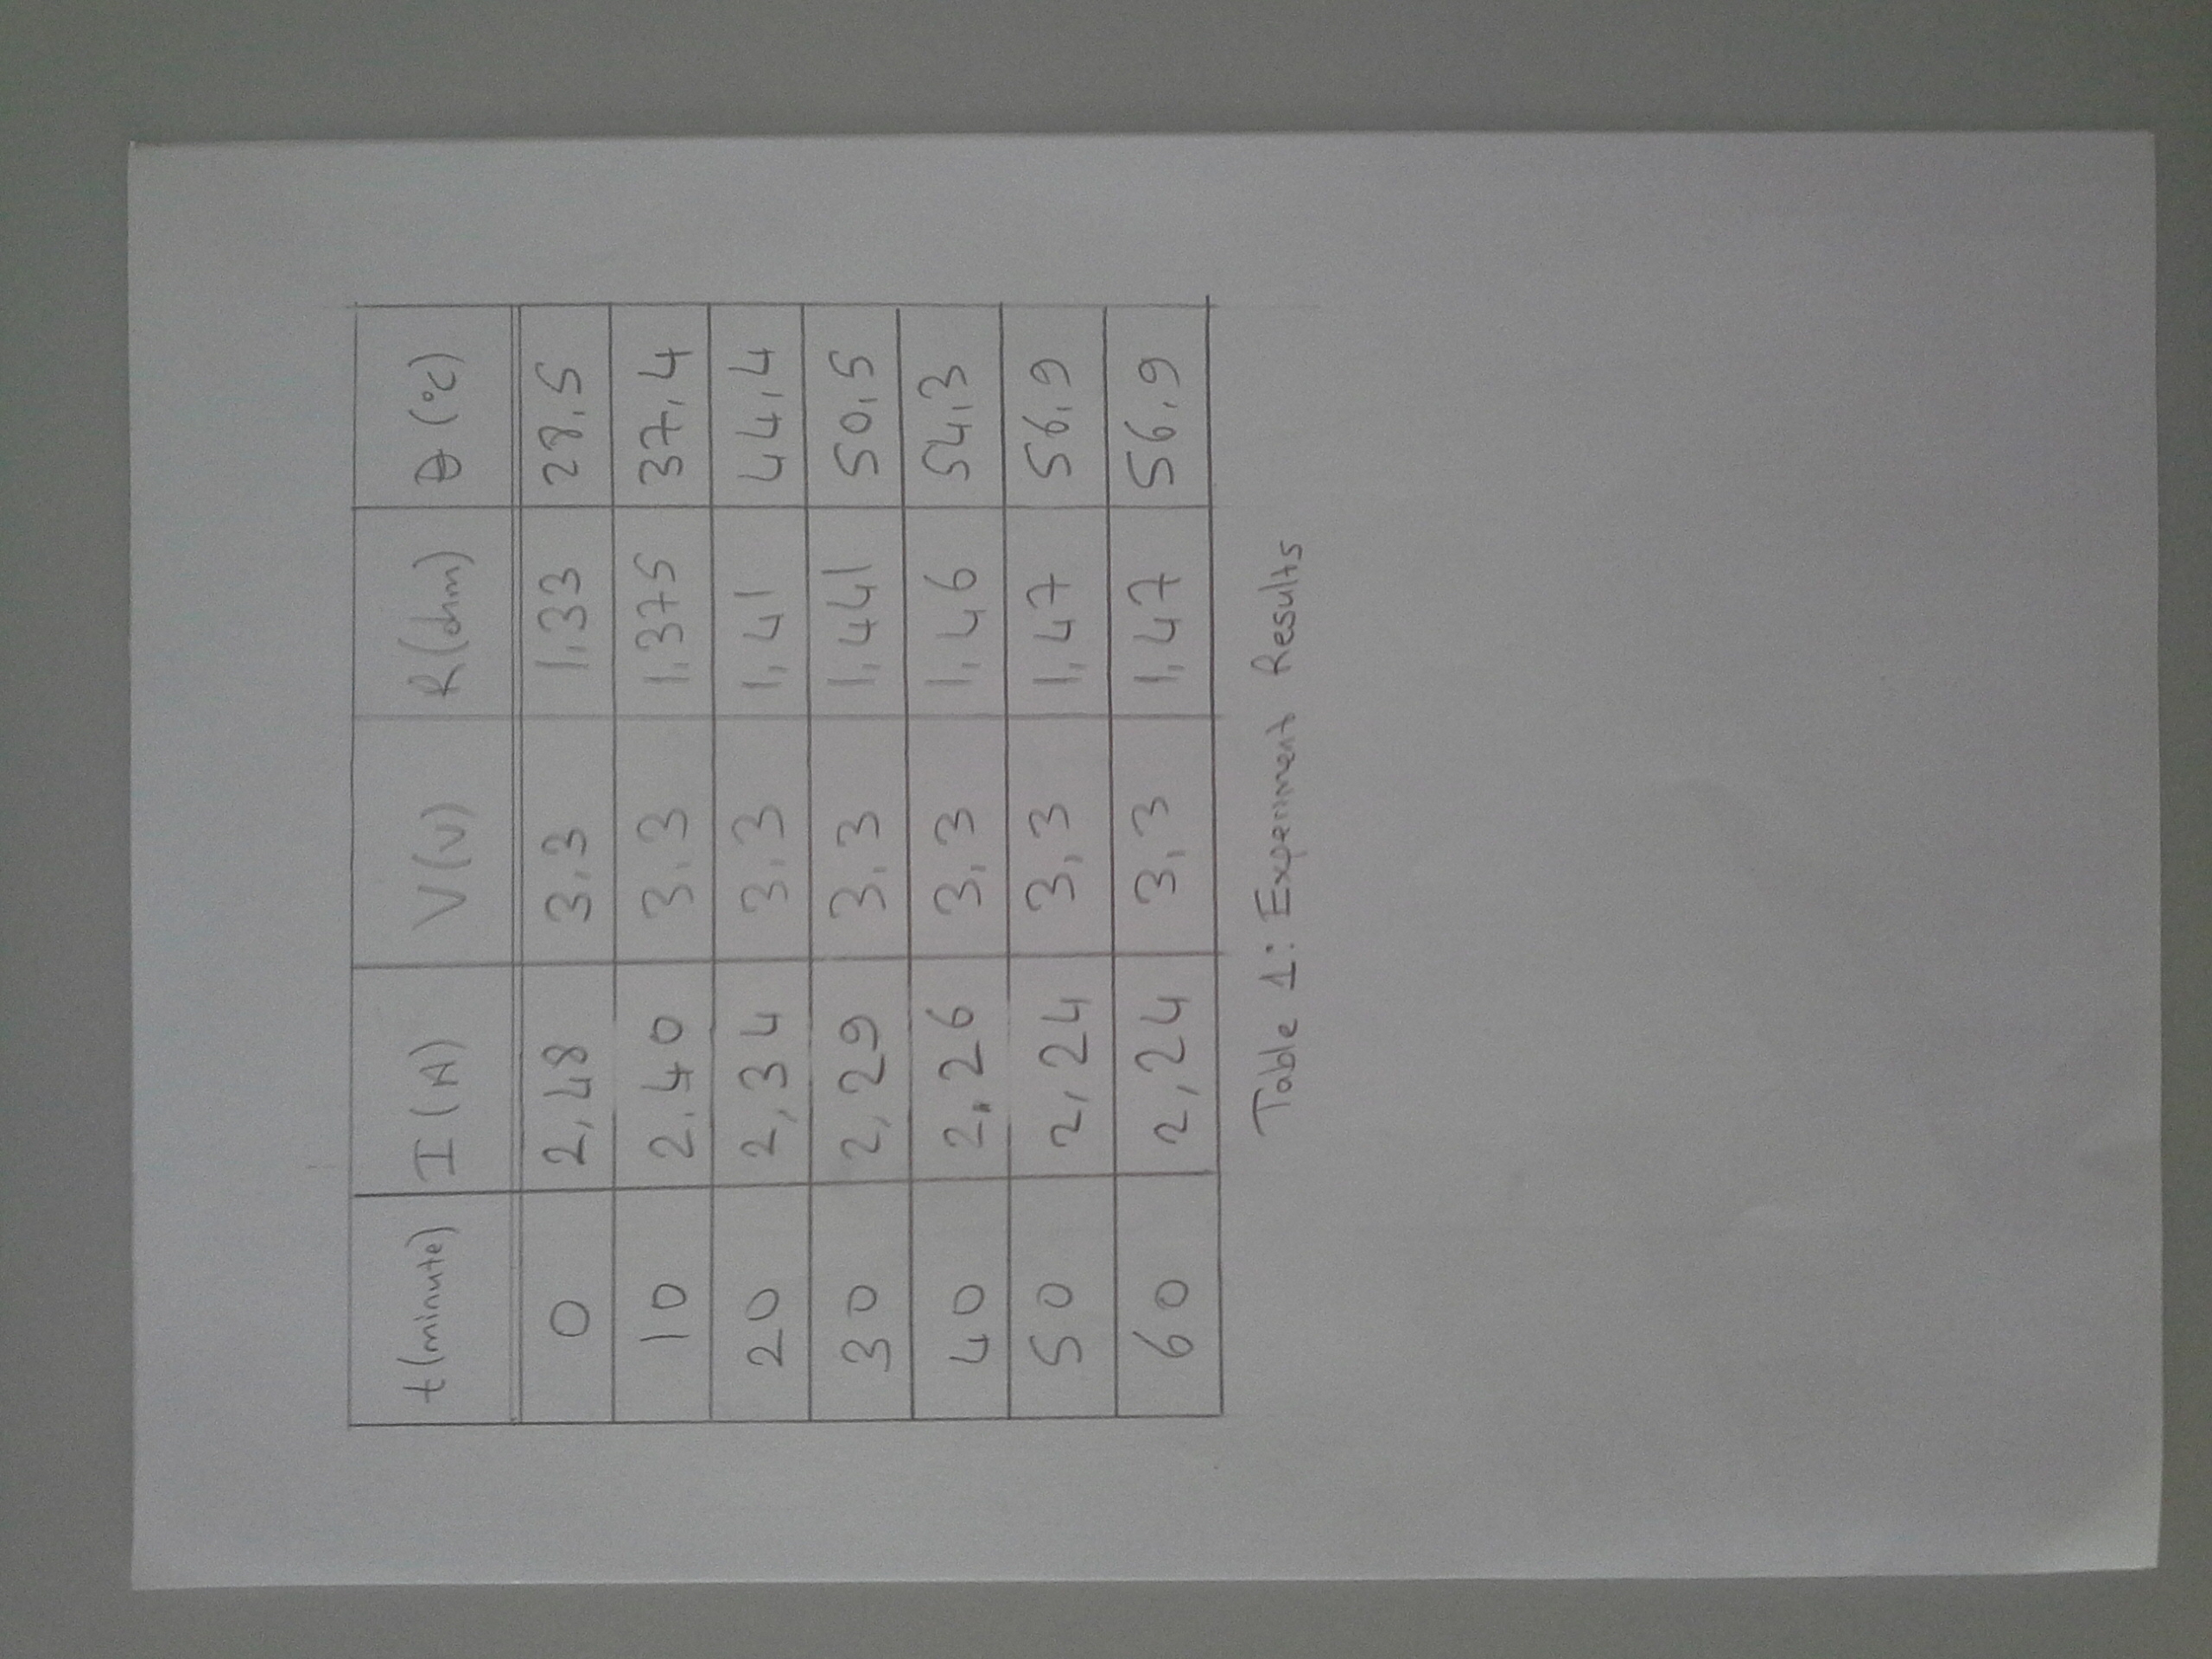 t(minute) I(A) V(V) R(ohm) θ(°C)
0 2,48 3.3 1.33 28.5
10 2.40 3.3 1.375 37.4
20 2,34 3.3 1,41 44,4
30 2,29 3.3 1,441 50,5
40 2.26 3,3 1,46 54,3
50 2,24 3,3 1,47 56,9
60 2,24 3,3 1,47 56,9
Table 1: Experiment Results